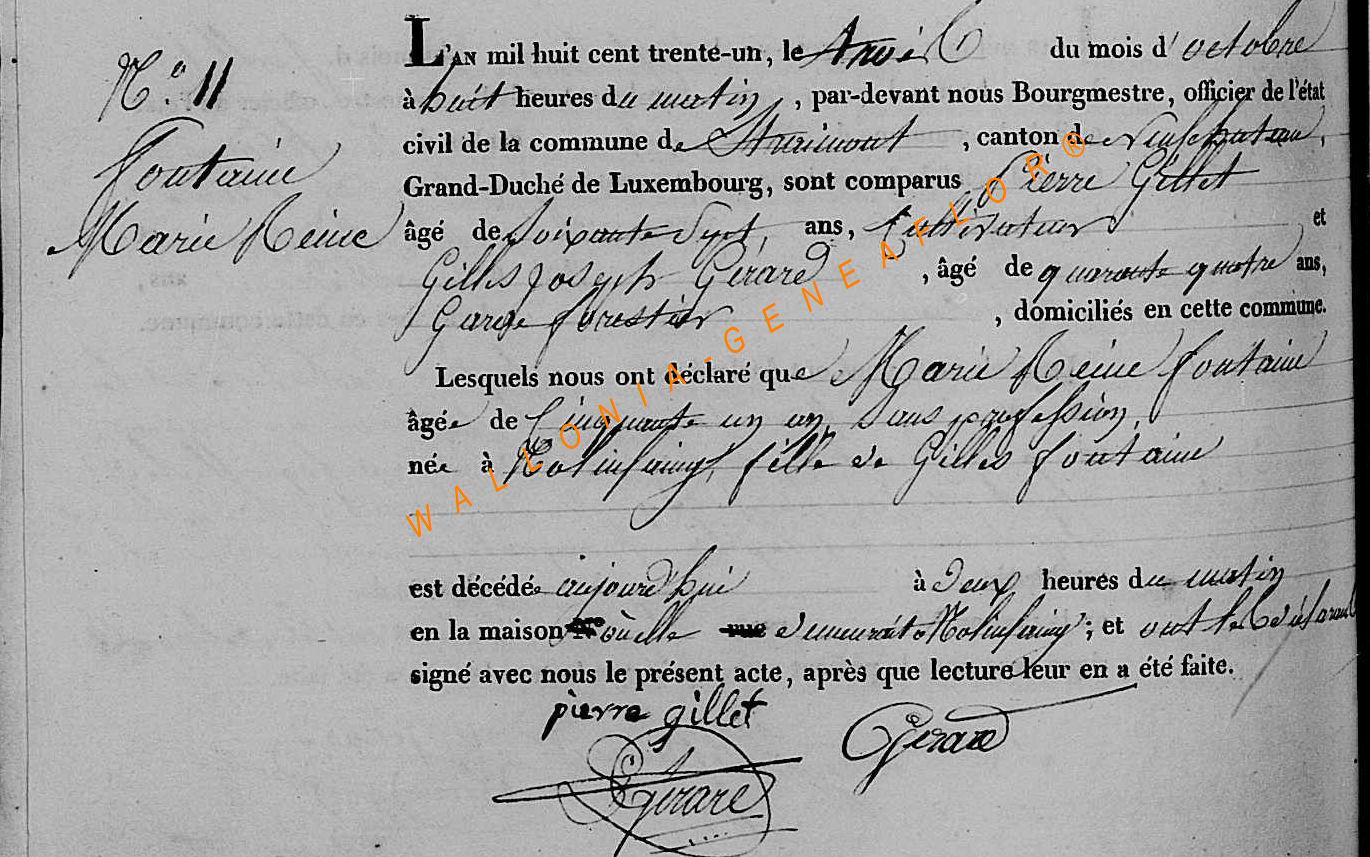 N.° 11
Fontaine
Marie Reine
L'AN mil huit cent trente-un, le trois du mois d'octobre
à huit heures du matin, par-devant nous Bourgmestre, officier de l'état
civil de la commune de Straimont, canton de Neufchateau,
Grand-Duché de Luxembourg, sont comparus Pierre Gillet
âgé de soixante Sept ans, Cultivateur et
Gilles Joseph Gérard, âgé de quarante quatre ans,
Garde forestier, domiciliés en cette commune.
Lesquels nous ont déclaré que Marie Reine fontaine
âgée de Cinquante un an, sans profession,
née à Molinfaing, fille de Gilles fontaine
est décédée aujourd'hui à Deux heures du matin
en la maison où elle demeurait à Molinfaing; et ont les Déclarants
signé avec nous le présent acte, après que lecture leur en a été faite.
pierre gillet
Gérard
Gérard
WALLONIA-GENEAFLOR®